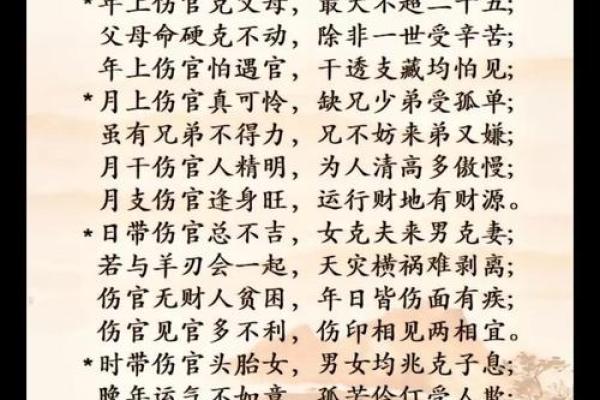 *年上伤官克父母，最大不超二十五;
父母命硬克不动，除非一世受辛苦;
年上伤官怕遇官，干透支藏均怕见;
*月上伤官真可怜，缺兄少弟受孤单;
虽有兄弟不得力，兄不妨来弟又嫌;
月干伤官人精明，为人清高多傲慢;
月支伤官逢身旺，运行财地有财源。
*日带伤官总不吉，女克夫来男克妻;
若与羊刃会一起，天灾横祸难剥离;
伤官无财人贫困，年日皆伤面有疾;
伤官见官多不利，伤印相见两相宜。
*时带伤官头胎女，男女均兆克子息;
晚年运气不如意，孤苦伶仃受人欺